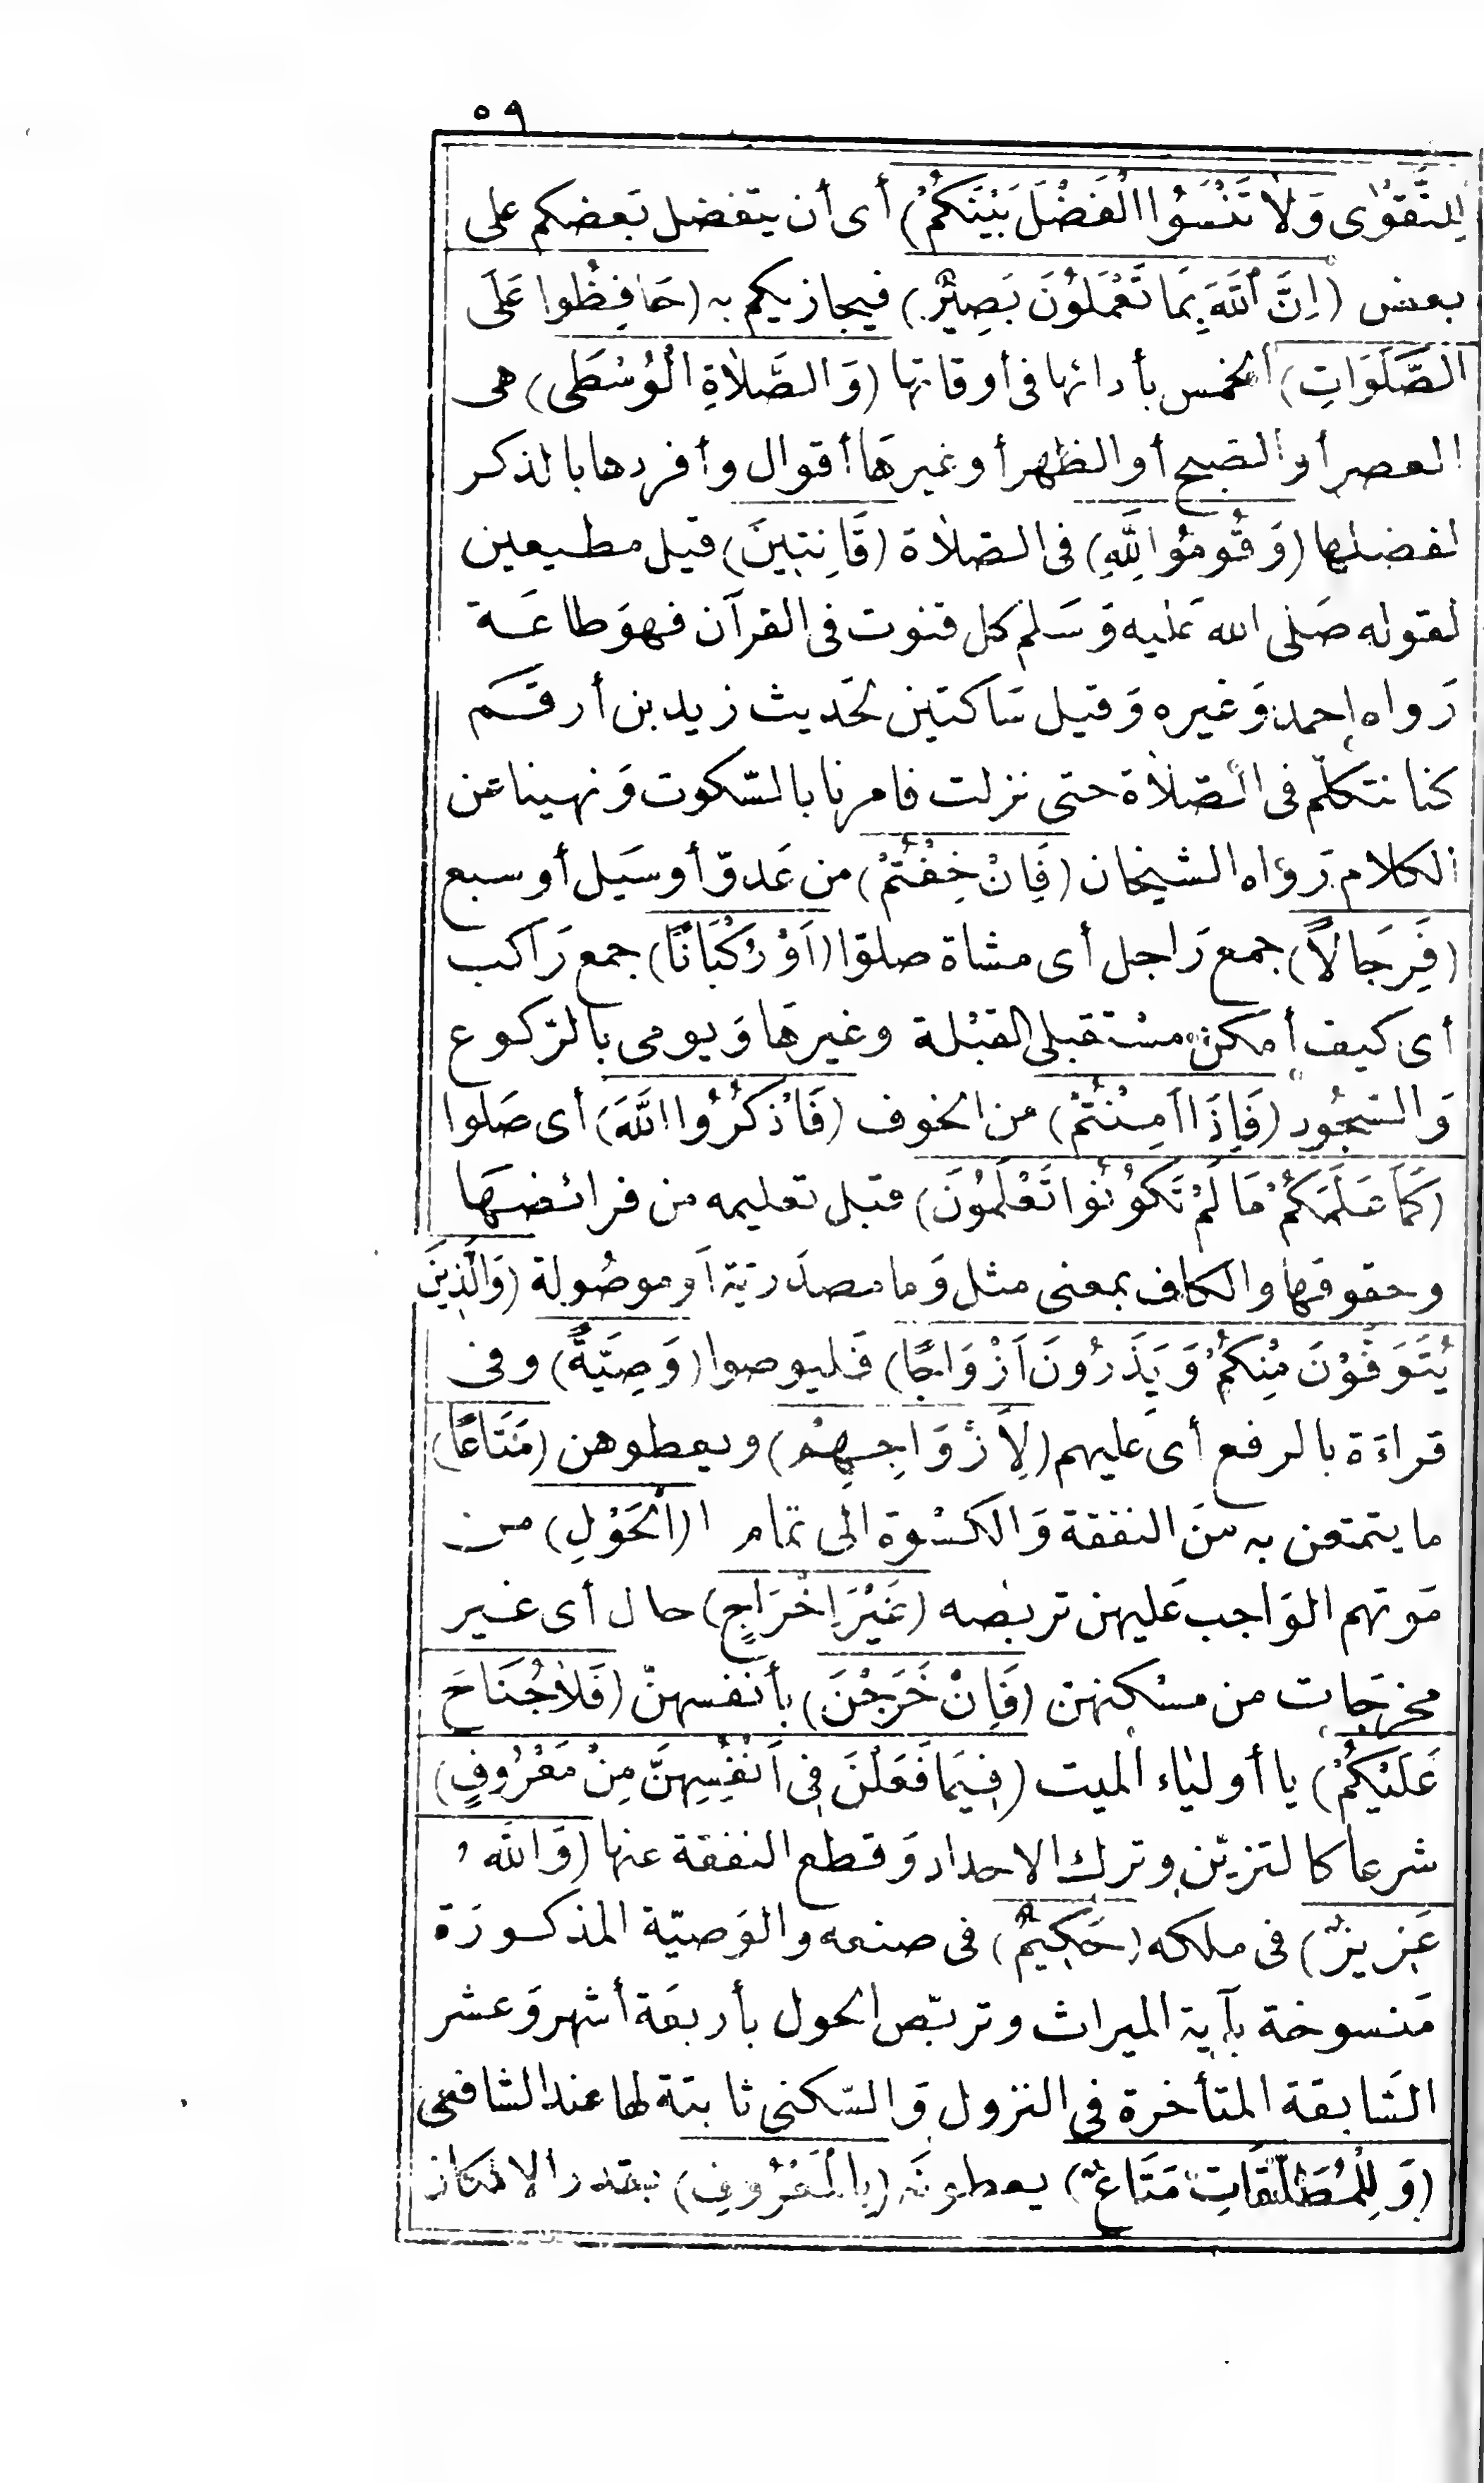 ٥٩
لِلتَّقْوٰى وَلَا تَنْسَوُا الْفَضْلَ بَيْنَكُمْ) أى أن يتفضل بَعضكم على
بعض (اِنَّ اللّٰهَ بِمَا تَعْمَلُوْنَ بَصِيْرٌ) فيجازيكم به (حَافِظُوا عَلَى
الصَّلَوَاتِ) الخمس بأدائها فى أوقاتها (وَالصَّلَاةِ الْوُسْطَى) هى
العصر أو الصبح أو الظهر أو غيرهَا أقوال وأفردها بالذكر
لفضلها (وَقُومُوا لِلّٰهِ) فى الصلاة (قَانِتِيْنَ) قيل مطيعين
لقوله صَلى الله عَليه وَسَلم كل قنوت فى القرآن فهوَ طاعَة
رَواه احمد وَغيره وَقيل سَاكتين لحَديث زيد بن أرقَم
كنا نتكلّم فى الصّلاة حتى نزلت فامرنا بالسّكوت وَنهينا عَن
الكلام رَواه الشيخان (فَاِنْ خِفْتُمْ) من عَدوّ أو سَيل أو سبع
(فَرِجَالًا) جمع رَاجل أى مشاة صلوّا (اَوْ رُكْبَانًا) جمع رَاكب
أى كيف أمكن مسْتقبلى القبْلة وغيرهَا وَيومى بالرّكوع
وَالسّجُود (فَاِذَا اَمِنْتُمْ) من الخوف (فَاذْكُرُوا اللّٰهَ) أى صَلوا
(كَمَا عَلَّمَكُمْ مَا لَمْ تَكُوْنُوْا تَعْلَمُوْنَ) قبل تعليمه من فرائضهَا
وحقوقها والكاف بمعنى مثل وَما مصدَريّة اَو موصُولة (وَالَّذِيْنَ
يُتَوَفَّوْنَ مِنْكُمْ وَيَذَرُونَ اَزْوَاجًا) فَليوصوا (وَصِيَّةً) وفى
قراءَة بالرفع أى عَليهم (لِاَزْوَاجِهِمْ) ويعطوهن (مَتَاعًا)
ما يتمتعن به منَ النفقة وَالكسْوة الى تمَام (الْحَوْلِ) من
مَوتهم الوَاجب عَليهن تربصه (غَيْرَ اِخْرَاجٍ) حال أى غير
مخرجَات من مسْكنهنّ (فَاِنْ خَرَجْنَ) بأنفسهنّ (فَلَا جُنَاحَ
عَلَيْكُمْ) يا أولياء الميت (فِيْمَا فَعَلْنَ فِى اَنْفُسِهِنَّ مِنْ مَعْرُوفٍ)
شرعا كالتزيّن وترك الاحداد وَقطع النفقة عنها (وَاللّٰهُ
عَزِيزٌ) فى ملكه (حَكِيْمٌ) فى صنعه والوَصيّة المذكورَة
مَنسوخة بآية الميراث وتربّص الحول بأربعَة أشهر وَعشر
السَّابقة المتأخرة فى النزول وَالسّكنى ثابتة لها عند الشافعى
(وَلِلْمُطَلَّقَاتِ مَتَاعٌ) يعطونَه (بِالْمَعْرُوفِ) بقدر الامكان